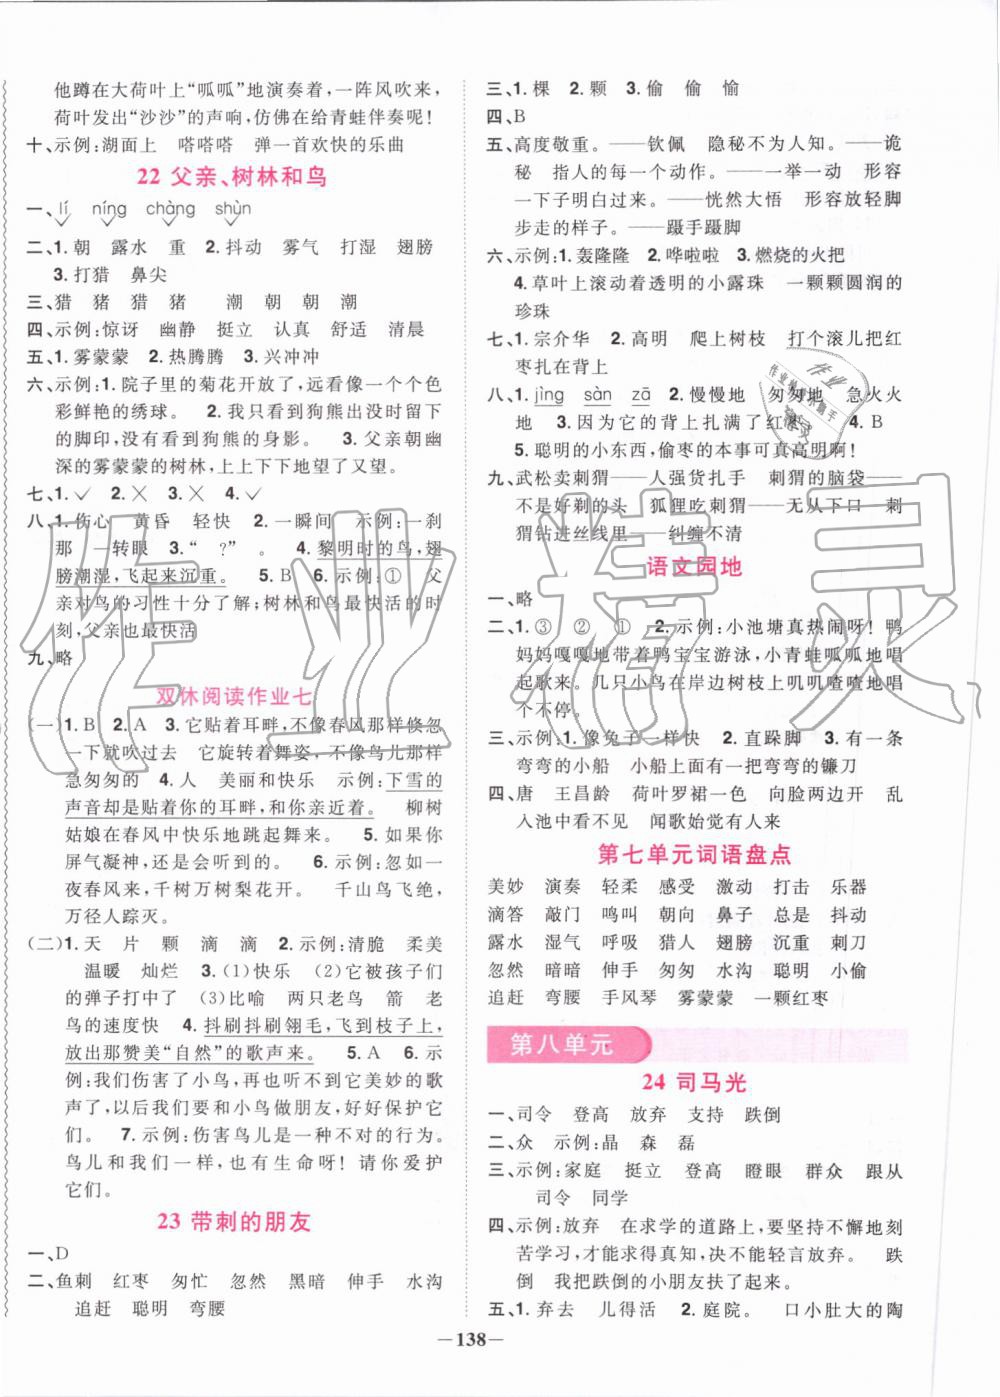 他蹲在大荷叶上“呱呱”地演奏着，一阵风吹来，
荷叶发出“沙沙”的声响，仿佛在给青蛙伴奏呢！
十、示例:湖面上　嗒嗒嗒　弹一首欢快的乐曲
22 父亲、树林和鸟
一、lí　níng　chàng　shùn
二、1.朝　露水　重　2.抖动　雾气　打湿　翅膀
3.打猎　鼻尖
三、猎　猪　猎　猪　潮　朝　朝　潮
四、示例:惊讶　幽静　挺立　认真　舒适　清晨
五、1.雾蒙蒙　2.热腾腾　3.兴冲冲
六、示例:1.院子里的菊花开放了,远看像一个个色
彩鲜艳的绣球。　2.我只看到狗熊出没时留下
的脚印,没看到狗熊的身影。　3.父亲朝幽
深的雾蒙蒙的树林,上上下下地望了又望。
七、1.✓　2.✕　3.✕　4.✓
八、1.伤心　黄昏　轻快　2.一瞬间　示例:一刹
那　一转眼　3.“　?”　。　4.黎明时的鸟,翅
膀潮湿,飞起来沉重。　5.B　6.示例:①　父
亲对鸟的习性十分了解;树林和鸟最快活的时
刻,父亲也最快活
九、略
双休阅读作业七
(一)1.B　2.A　3.它贴着耳畔,不像春风那样倏忽
一下就吹过去　它旋转着舞姿,不像鸟儿那样
急匆匆的　4.人　美丽和快乐　示例:下雪的
声音却是贴着你的耳畔,和你亲近着。　柳树
姑娘在春风中快乐地跳起舞来。　5.如果你
屏气凝神,还是会听到的。　6.示例:忽如一
夜春风来,千树万树梨花开。　千山鸟飞绝,
万径人踪灭。
(二)1.天　片　颗　滴　滴　2.示例:清脆　柔美
温暖　灿烂　3.(1)快乐　(2)它被孩子们
的弹子打中了　(3)比喻　两只老鸟　箭　老
鸟的速度快　4.抖刷抖刷翎毛,飞到枝子上,
放出那赞美“自然”的歌声来。　5.A　6.示
例:我们伤害了小鸟,就听不到它美妙的歌
声了,以后我们要和小鸟做朋友,好好保护它
们。　7.示例:伤害鸟儿是一种不对的行为。
鸟儿和我们一样,也有生命呀！请你爱护
它们。
23 带刺的朋友
一、D
二、鱼刺　红枣　匆忙　忽然　黑暗　伸手　水沟
追赶　聪明　弯腰
三、1.棵　2.颗　3.偷　偷　偷
四、B
五、高度敬重。——钦佩　隐秘不为人知。——诡
秘　指人的每一个动作。——一举一动　形容
一下子明白过来。——恍然大悟　形容放轻脚
步走的样子。——蹑手蹑脚
六、示例:1.轰隆隆　2.哗啦啦　3.燃烧的火把
4.草叶上滚动着透明的小露珠　一颗颗圆润的
珍珠
七、1.宗介华　2.高明　爬上树枝　打个滚儿把红
枣扎在背上
八、1.jìng　sàn　zā　2.慢慢地　匆匆地　急火火
地　3.因为它的背上扎满了红枣　4.B
5.聪明的小东西,偷枣的本事可真高明啊！
九、武松卖刺猬——人强货扎手　刺猬的脑袋——
不是好剃的头　狐狸吃刺猬——无从下口　刺
猬钻进丝线里——纠缠不清
语文园地
一、略
二、1.③　②　①　2.示例:小池塘真热闹呀！鸭
妈妈嘎嘎地带着鸭宝宝游泳,小青蛙呱呱地唱
起歌来。几只小鸟在岸边树枝上叽叽喳喳地叫
个不停。
三、示例:1.像兔子一样快　2.直跺脚　3.有一条
弯弯的小船　小船上面有一把弯弯的镰刀
四、唐　王昌龄　荷叶罗裙一色　向脸两边开　乱
入池中看不见　闻歌始觉有人来
第七单元词语盘点
美妙　演奏　轻柔　感受　激动　打击　乐器
滴答　敲门　鸣叫　朝向　鼻子　总是　抖动
露水　湿气　呼吸　猎人　翅膀　沉重　刺刀
忽然　暗暗　伸手　匆匆　水沟　聪明　小偷
追赶　弯腰　手风琴　雾蒙蒙　一颗红枣
第八单元
24 司马光
一、司令　登高　放弃　支持　跌倒
二、众　示例:晶　森　磊
三、示例:家庭　挺立　登高　瞪眼　群众　跟从
司令　同学
四、示例:放弃　在求学的道路上,要坚持不懈地刻
苦学习,才能求得真知,决不能轻言放弃。　跌
倒　我把跌倒的小朋友扶了起来。
五、1.弃去　儿得活　2.庭院。　口小肚大的陶
—138—
作业精灵